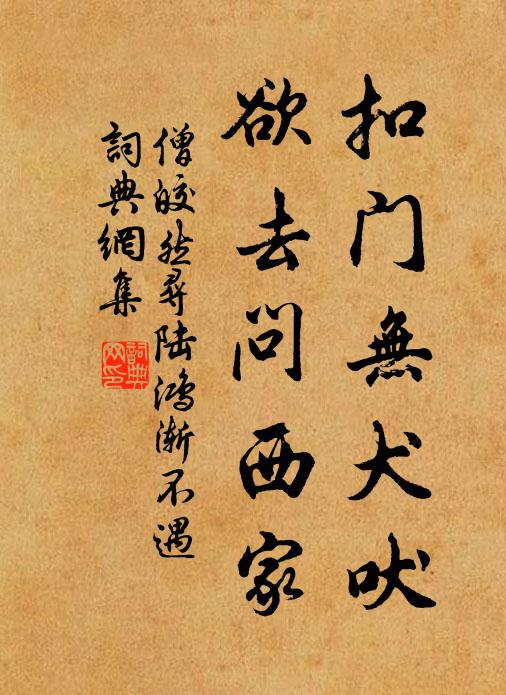 扣门無犬吠
欲去问西家
僧皎然尋陆鴻渐不遇
詞典網集
詞典
网印